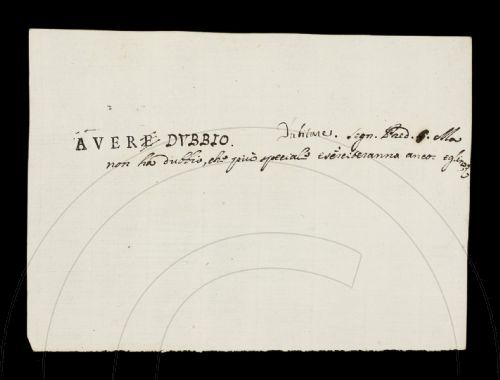 AVERE DVBBIO. Dubitare. Segn. Pred. 6. Ma
non ha dubbio, che più speciale eserciteranno ancor